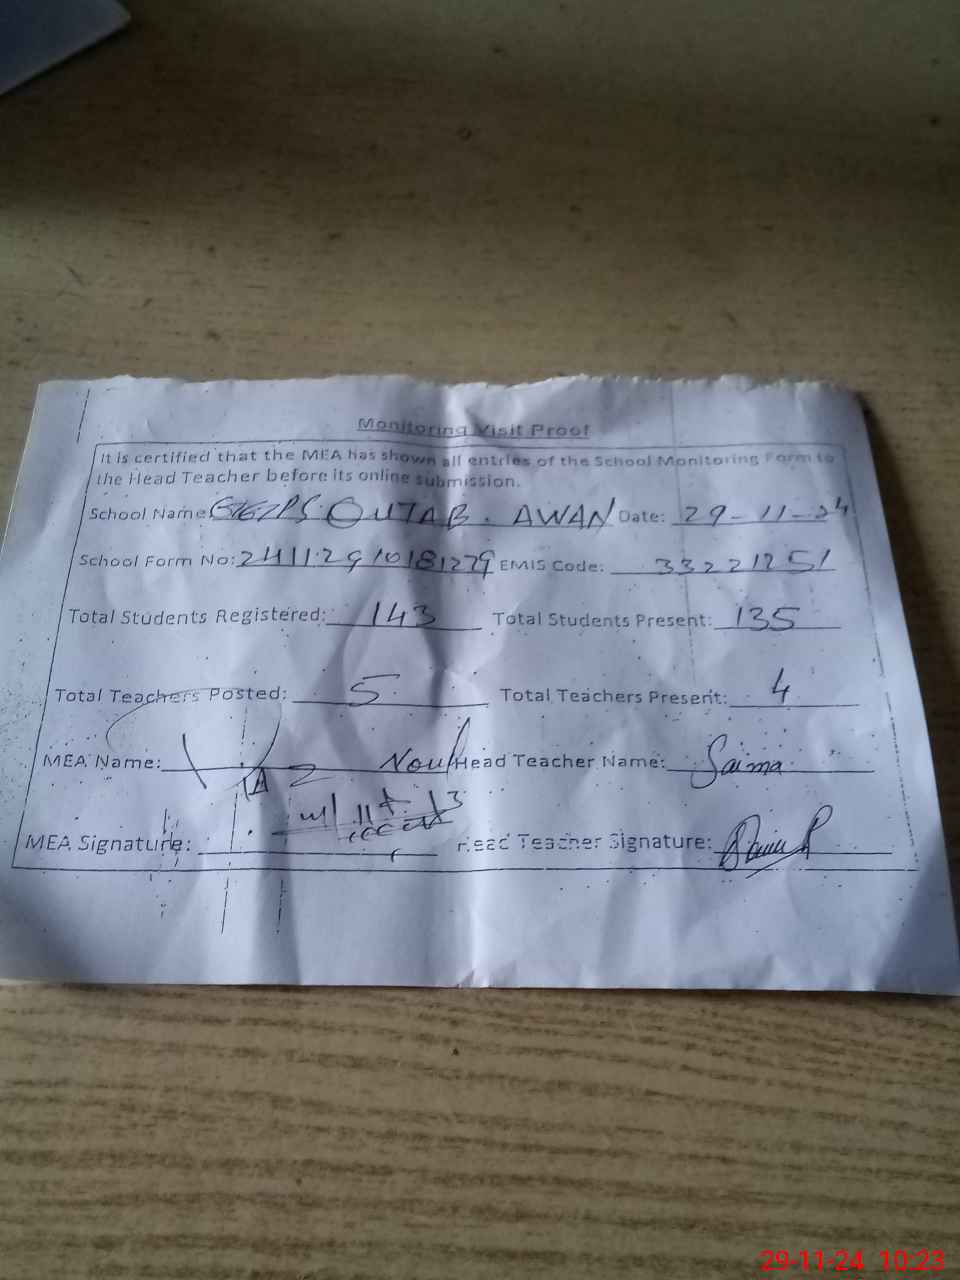 Monitoring Visit Proof
It is certified that the MEA has shown all entries of the School Monitoring Form to
the Head Teacher before its online submission.
School Name QUTAB. AWAN Date: 29-11-24
School Form No: 24112910181279 EMIS Code: 33221251
Total Students Registered: 143 Total Students Present: 135
Total Teachers Posted: 5 Total Teachers Present: 4
MEA Name: Head Teacher Name: Saima
MEA Signature: Head Teacher Signature:
29-11-24 10:23